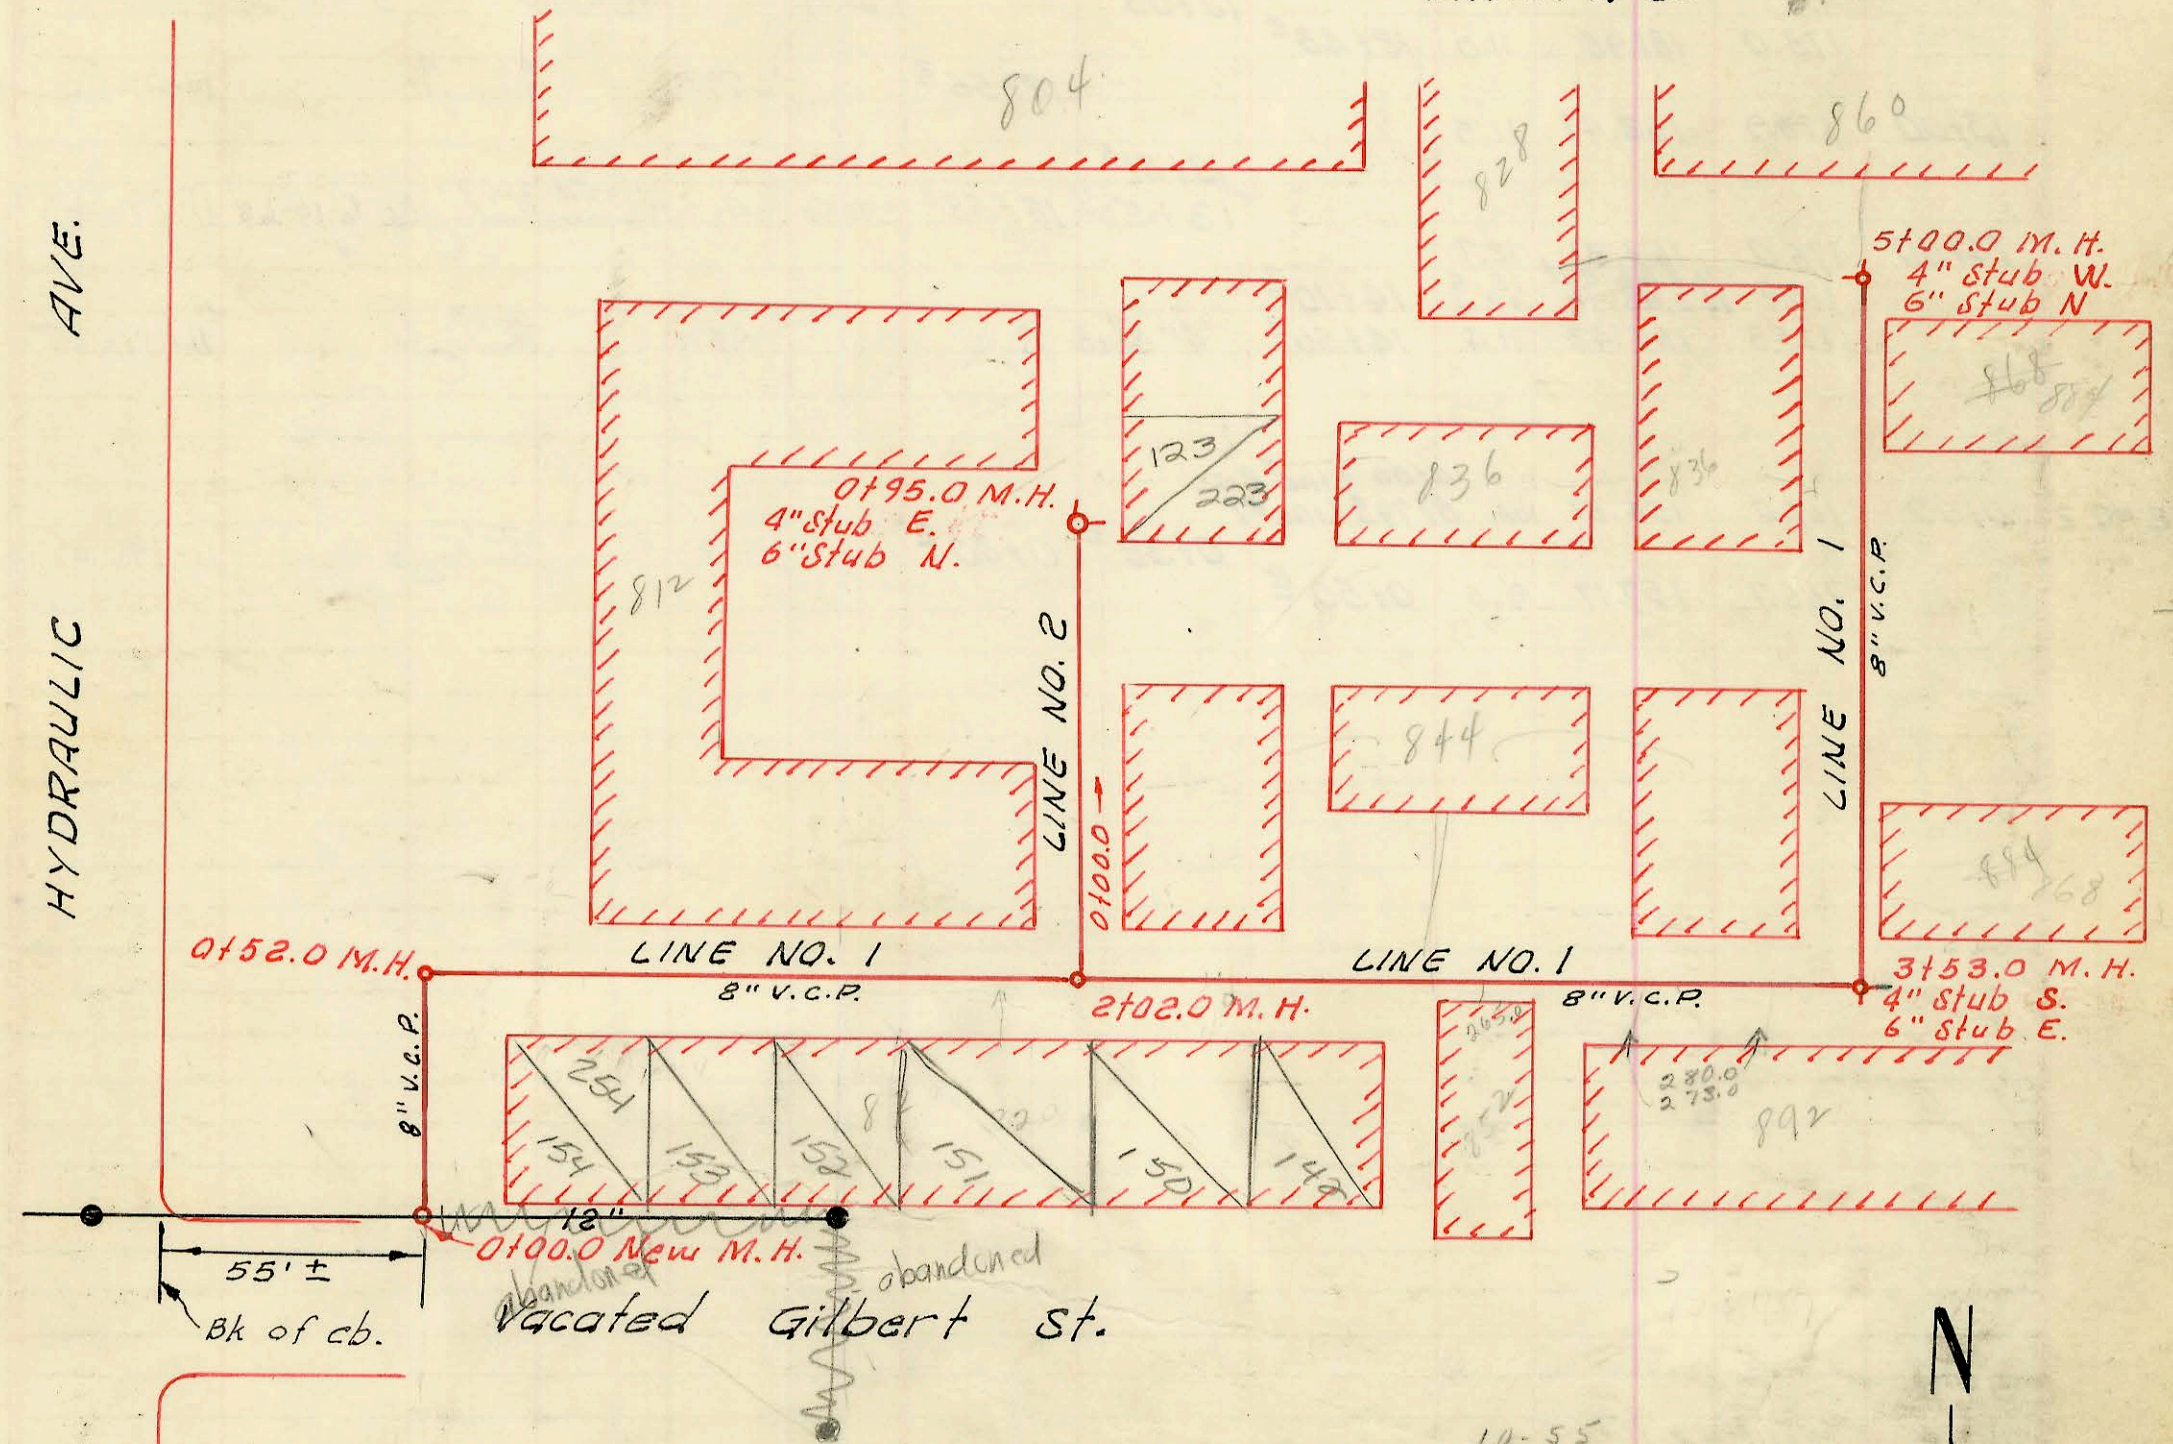 804
828
860
HYDRAULIC AVE.
5+00.0 M.H.
4" Stub W.
6" Stub N
868 884
123
223
836
836
0+95.0 M.H.
4" Stub E.
6" Stub N.
812
LINE NO. 2
0+00.0
LINE NO. 1
8" V.C.P.
844
884 868
0+52.0 M.H.
LINE NO. 1
8" V.C.P.
2+02.0 M.H.
LINE NO. 1
8" V.C.P.
3+53.0 M.H.
4" Stub S.
6" Stub E.
8" V.C.P.
254
154
153
152
151
150
265.0
852
280.0
273.0
892
12"
0+00.0 New M.H.
55' ±
Bk of cb.
abandoned
abandoned
Vacated Gilbert St.
N
10-55